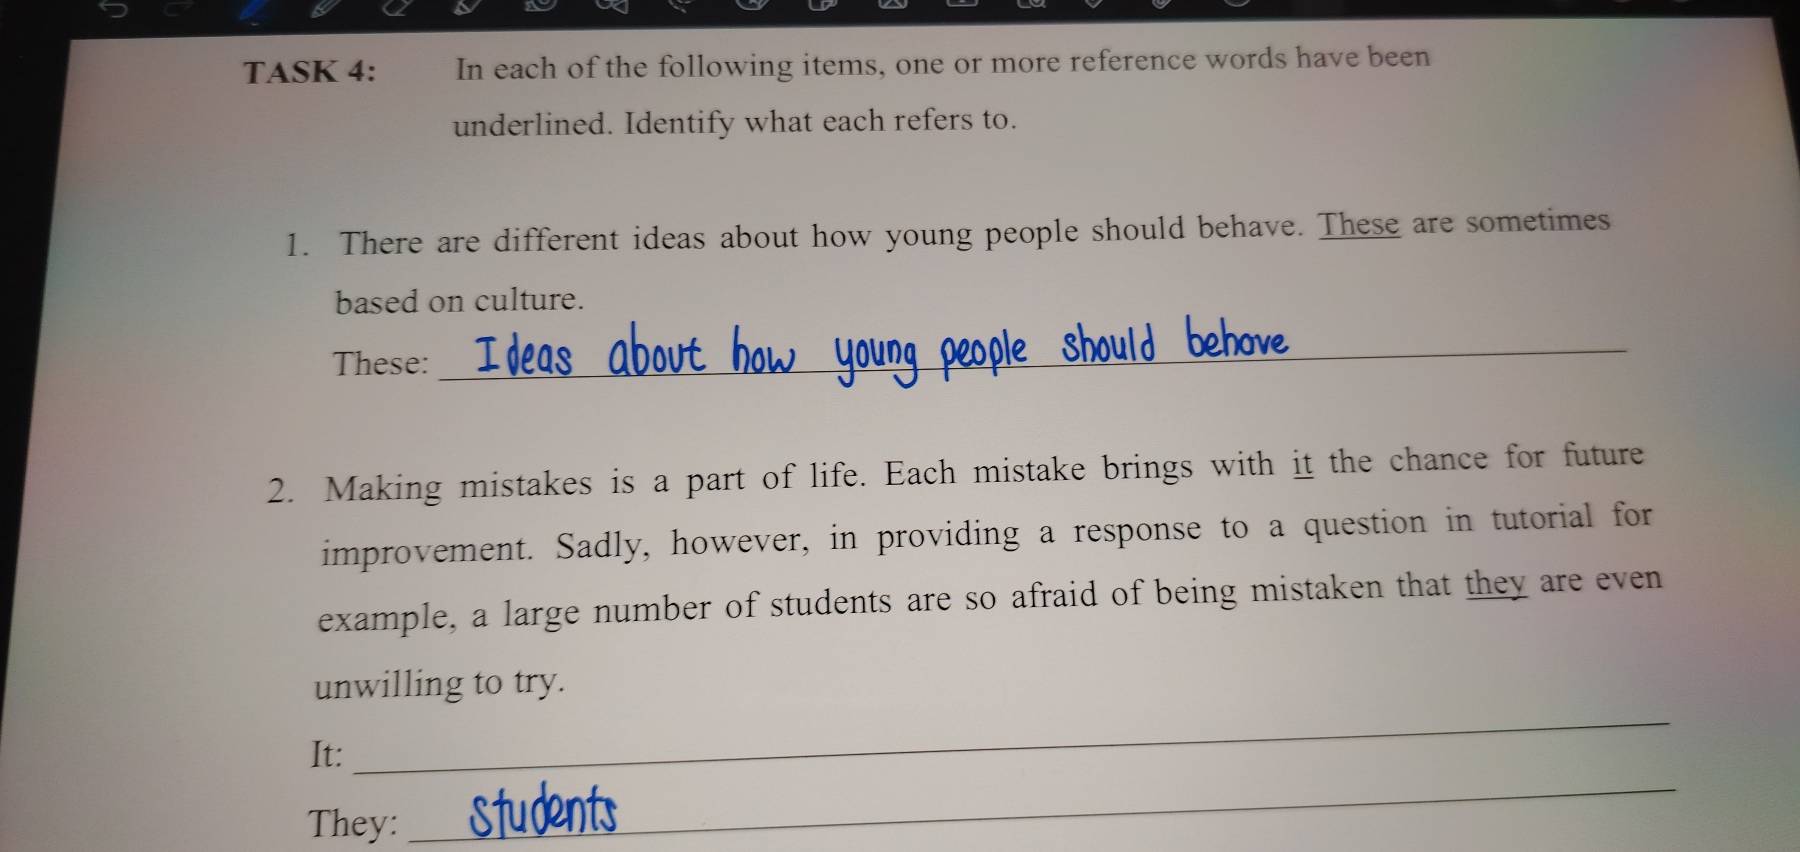 TASK 4: In each of the following items, one or more reference words have been
underlined. Identify what each refers to.
1. There are different ideas about how young people should behave. These are sometimes
based on culture.
These: Ideas about how young people should behave
2. Making mistakes is a part of life. Each mistake brings with it the chance for future
improvement. Sadly, however, in providing a response to a question in tutorial for
example, a large number of students are so afraid of being mistaken that they are even
unwilling to try.
It:
They: students